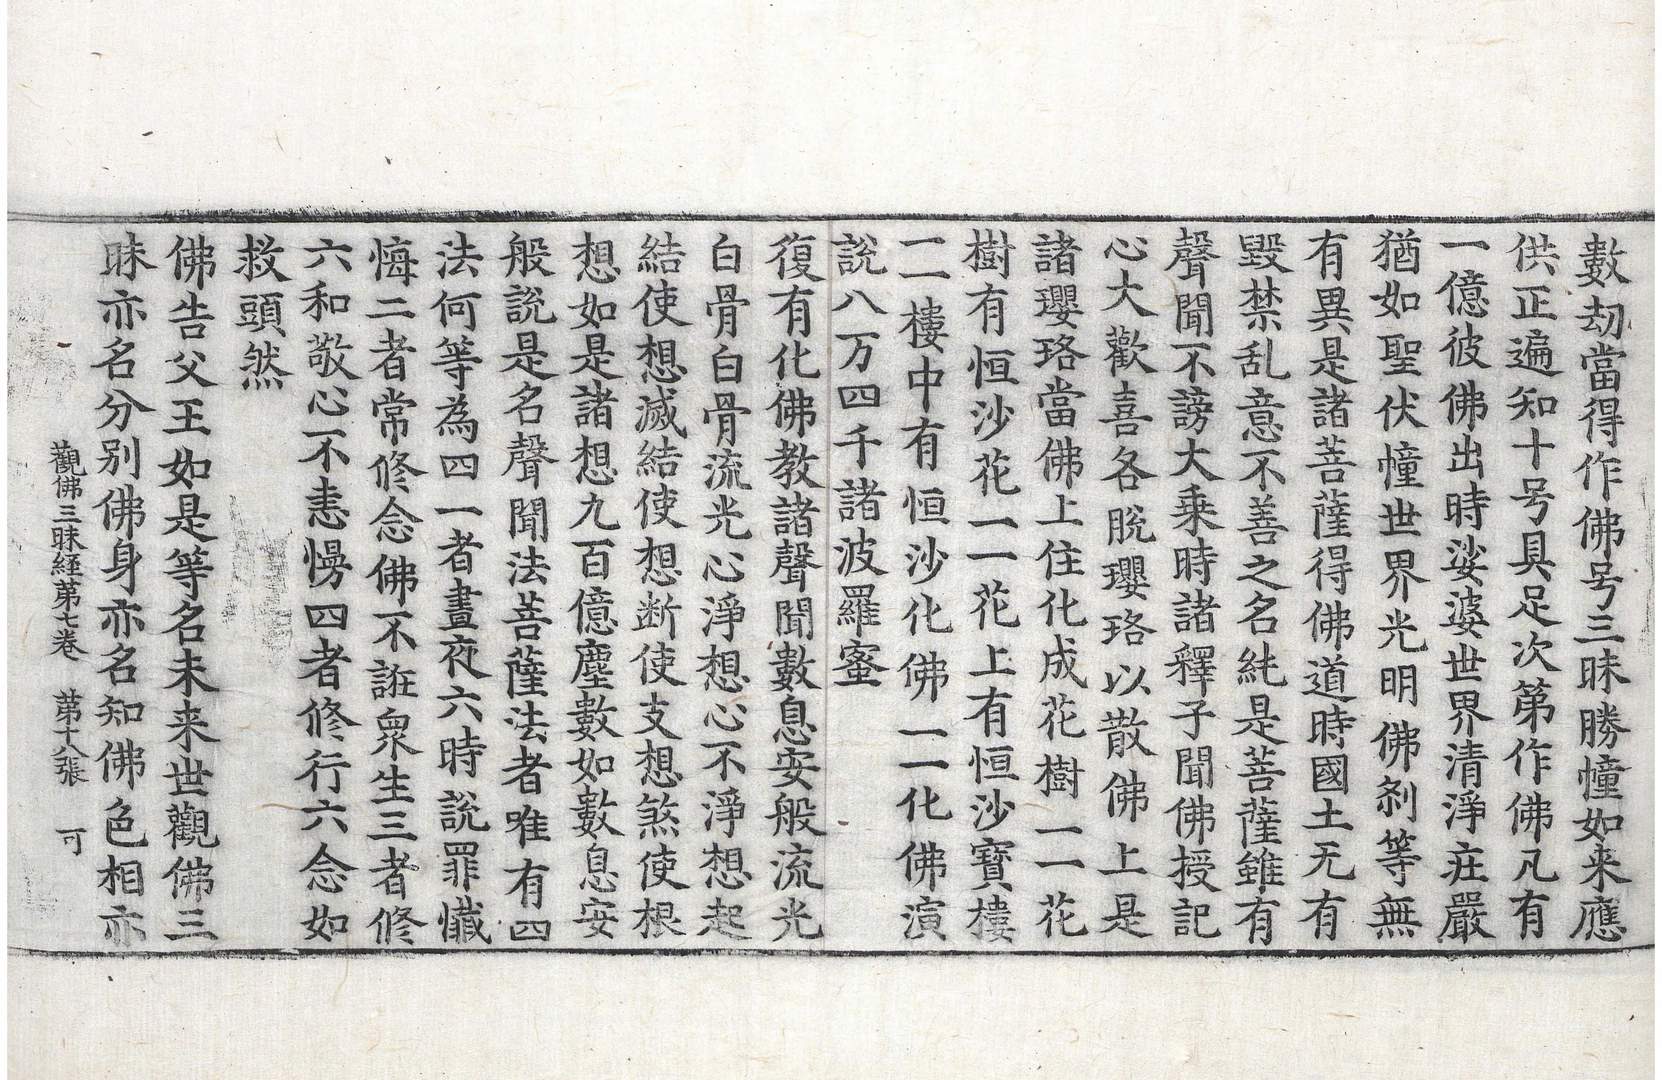 數劫當得作佛号三昧勝幢如来應
供正遍知十号具足次第作佛凡有
一億彼佛出時娑婆世界清淨莊嚴
猶如聖伏幢世界光明佛刹等無
有異是諸菩薩得佛道時國土无有
毀禁乱意不善之名純是菩薩雖有
聲聞不謗大乗時諸釋子聞佛授記
心大歡喜各脫瓔珞以散佛上是
諸瓔珞當佛上住化成花樹一一花
樹有恒沙花一一花上有恒沙寶樓
一一樓中有恒沙化佛一一化佛演
說八万四千諸波羅蜜
復有化佛教諸聲聞數息安般流光
白骨白骨流光心淨想心不淨想起
結使想滅結使想断使支想煞使根
想如是諸想九百億塵數如數息安
般說是名聲聞法菩薩法者唯有四
法何等為四一者晝夜六時說罪懺
悔二者常修念佛不誑衆生三者修
六和敬心不恚慢四者修行六念如
救頭然
佛告父王如是等名未来世觀佛三
昧亦名分別佛身亦名知佛色相亦
觀佛三昧經第七卷 第十八張 可